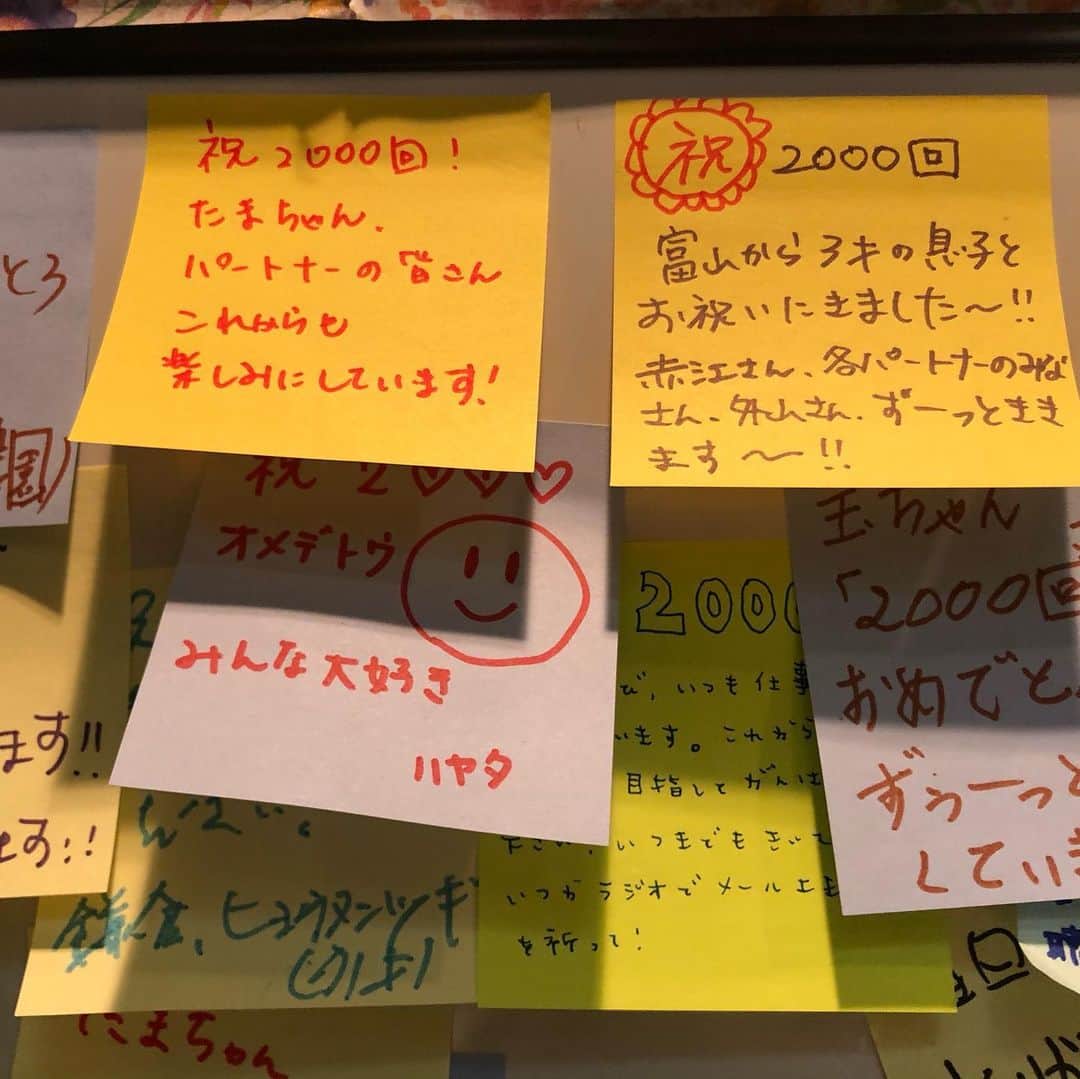 祝2000回!
たまちゃん、
パートナーの皆さん
これからも
楽しみにしています!
祝 2000回
富山から3才の息子と
お祝いにきました〜!!
赤江さん、各パートナーのみな
さん、外山さん、ずーっときき
ます〜!!
とろ
園)
祝 2♡♡♡
オメデトウ
みんな大好き
ハヤタ
玉ちゃん
「2000回
おめでと
ずぅーっと
してい
2000
び、いつも仕事
います。これから
目指してがんば
ださい。いつまでもきいて
いつかラジオでメール
を祈って!
ます!!
ます!!
鎌倉、ヒュウガ
たまちゃん
回